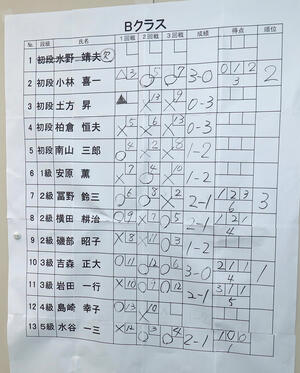 Bクラス
No. 段級 氏名 1回戦 2回戦 3回戦 成績 得点 順位
1 初段 水野 靖夫 欠
2 初段 小林 喜一 △3 ○5 ○7 3-0 0 1 2 3 2
3 初段 土方 昇 ▲ ×13 ×9 0-3
4 初段 柏倉 恒夫 ×5 ×6 ×13 0-3
5 初段 南山 三郎 ○4 ×2 ×8 1-2
6 1級 安原 薫 ×7 ○4 ×10 1-2
7 2級 冨野 鈴三 ○6 ○8 ×2 2-1 1 2 3 6 3
8 2級 横田 耕治 ○9 ×7 ○5 2-1 1 2 1 4
9 2級 磯部 昭子 ×8 ×11 ○3 1-2
10 3級 吉森 正大 ○11 ○12 ○6 3-0 2 1 1 4 1
11 3級 岩田 一行 ×10 ○9 ○12 2-1 3 1 1 5
12 4級 島崎 幸子 ○13 ×10
13 5級 水谷 一三 ×12 ○3 ○4 2-1 1 0 0 1